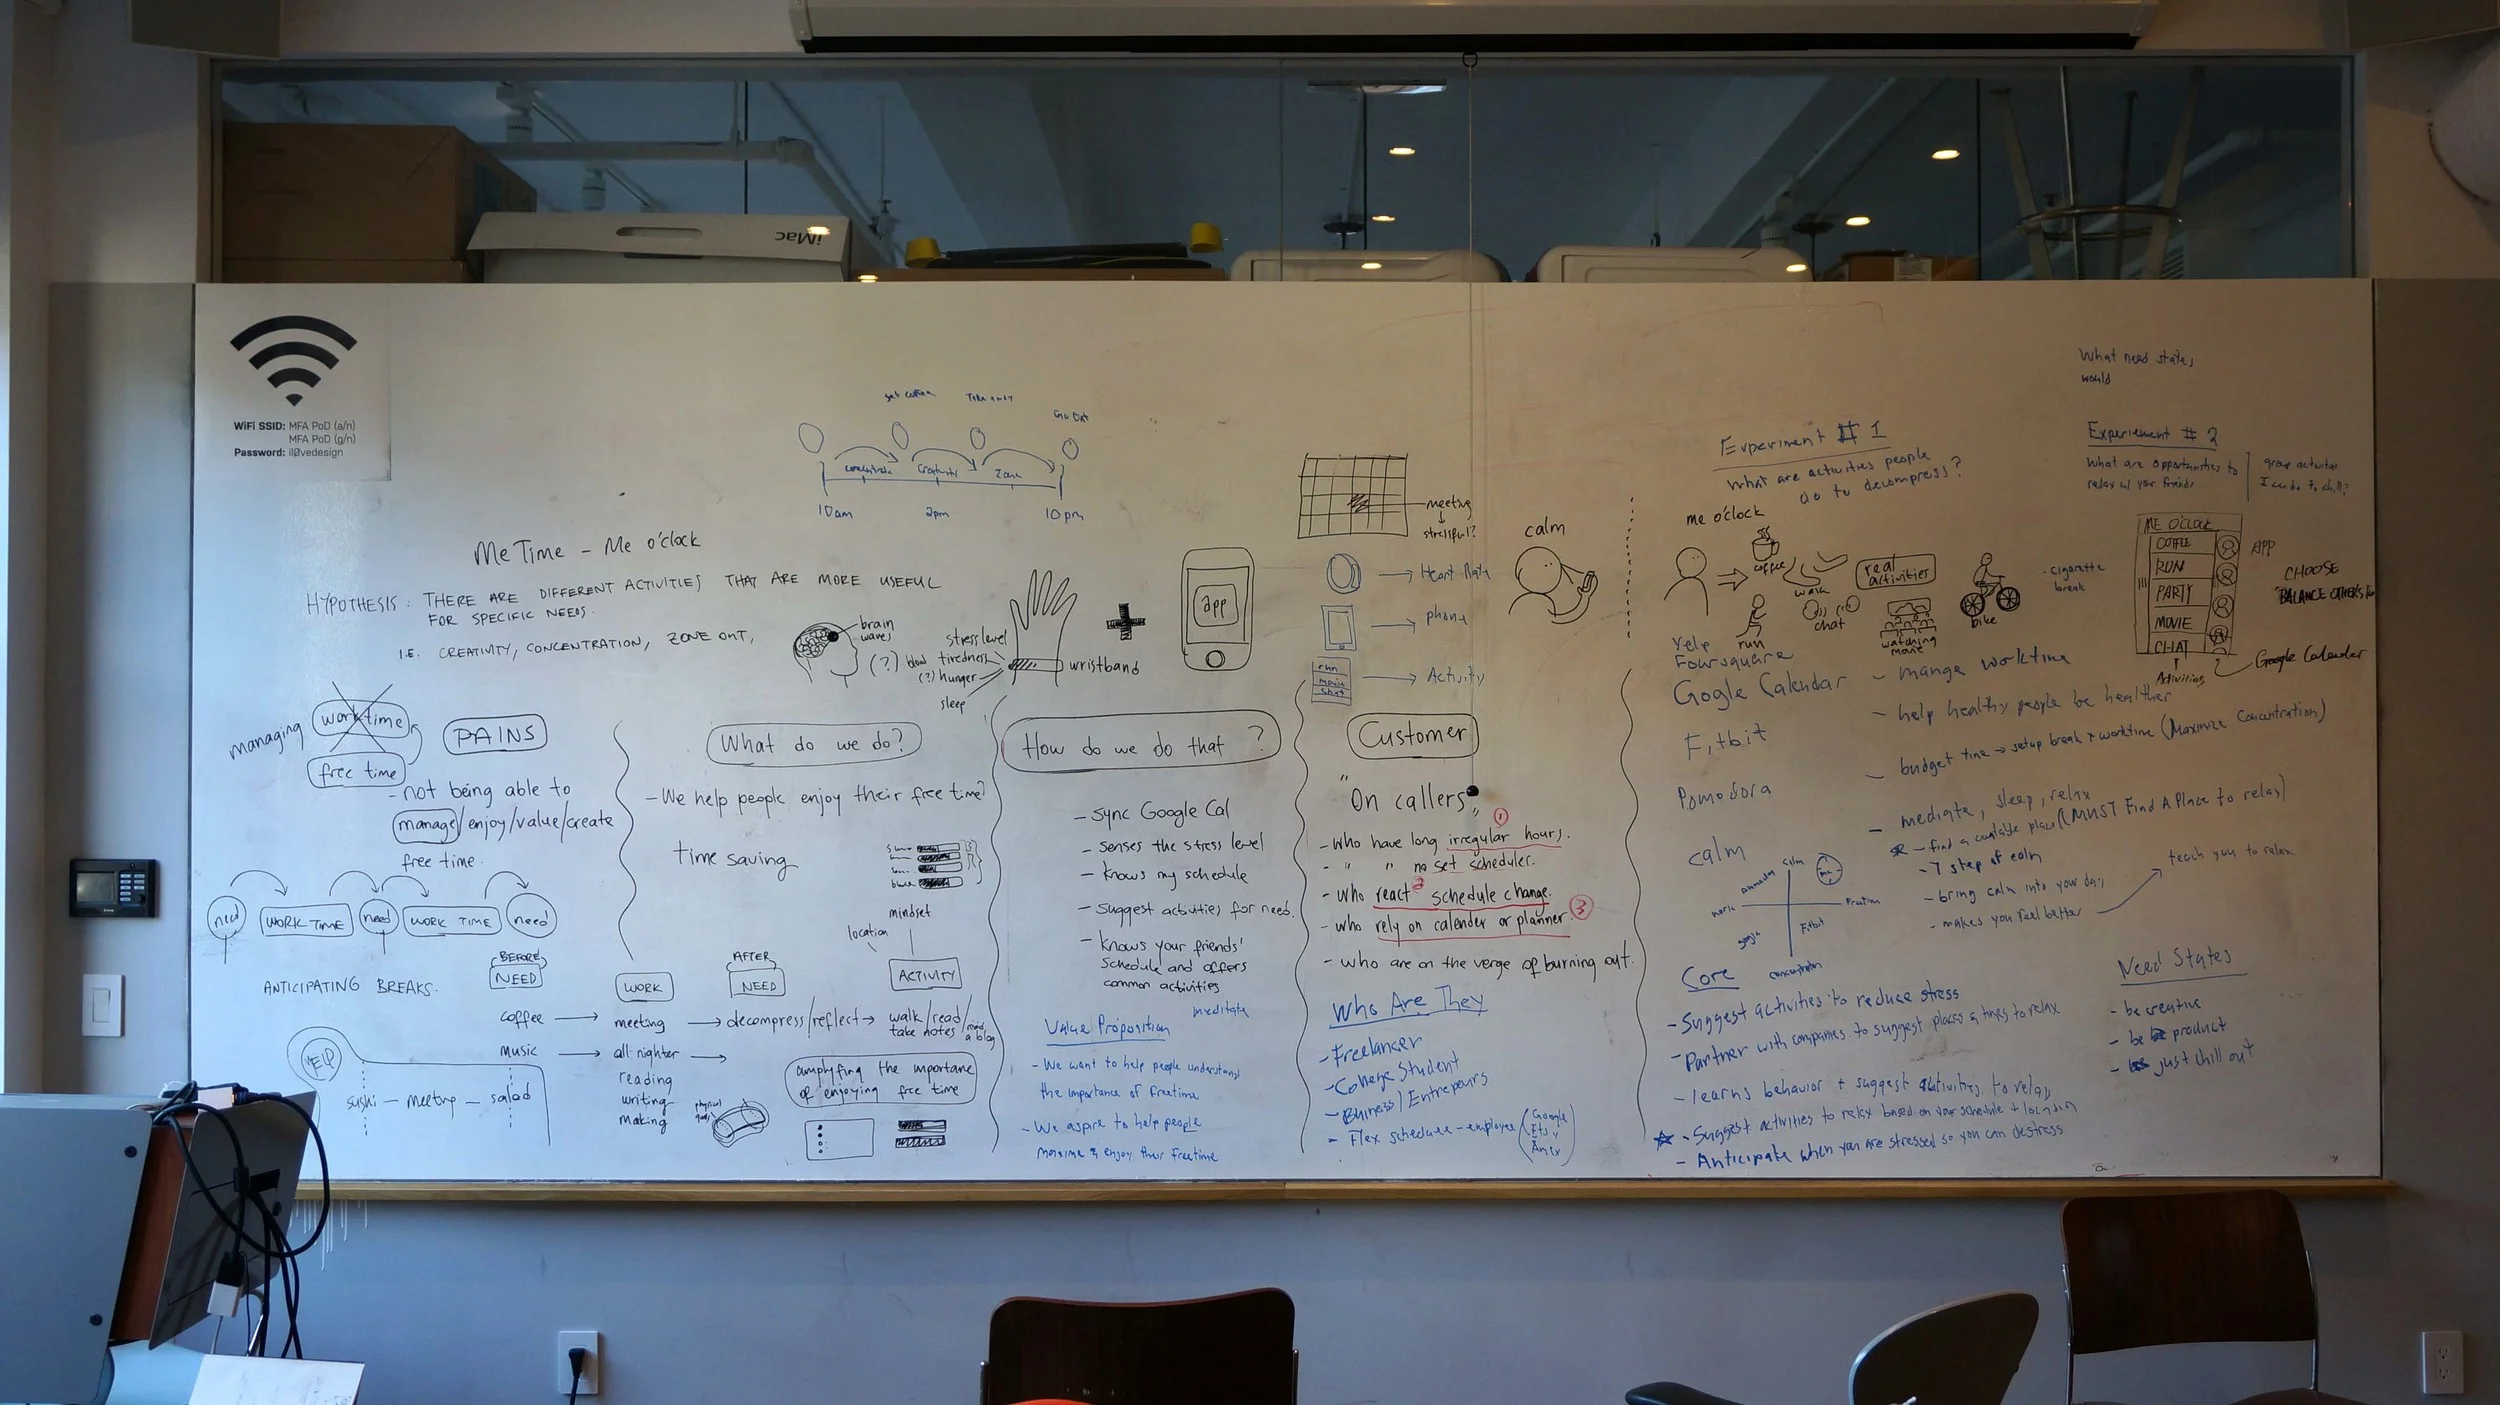 iMac
WiFi SSID: MFA PoD (a/n)
MFA PoD (g/n)
Password: il0vedesign
get coffee
Go Out
concentrate
Creativity
Zone
10am
2pm
10pm
Me Time - Me o'clock
HYPOTHESIS: THERE ARE DIFFERENT ACTIVITIES THAT ARE MORE USEFUL
FOR SPECIFIC NEEDS.
I.E. CREATIVITY, CONCENTRATION, ZONE OUT,
brain
waves
(?)
stress level
blood tiredness
(?) hunger
sleep
wristband
app
meeting
stressful?
Heart Rate
phone
run
movie
chat
Activity
calm
managing
work time
free time
PAINS
- not being able to
manage/enjoy/value/create
free time.
need
WORK TIME
need
WORK TIME
need
ANTICIPATING BREAKS.
BEFORE
NEED
WORK
AFTER
NEED
ACTIVITY
coffee
meeting
decompress/reflect
walk/read/
take notes
/read
a blog
music
all nighter
reading
writing
making
YELP
sushi - meetup - salad
What do we do?
- We help people enjoy their free time?
time saving
mindset
location
amplyfing the importane
of enjoying free time
physical
How do we do that ?
- sync Google Cal
- senses the stress level
- knows my schedule
- suggest activities for need.
- knows your friends'
schedule and offers
common activities
meditate
Value Proposition
- We want to help people understand
the importance of freetime
- We aspire to help people
maxime & enjoy their freetime
Customer
"On callers"
1
- who have long irregular hours.
- " " no set scheduler.
2
- who react schedule change.
- who rely on calender or planner.
3
- who are on the verge of burning out.
Who Are They
- Freelancer
- College Student
- Buiness/Entrepours
- Flex schedule - employee
Google
Etsy
Amex
Experiment # 1
What are activities people
do to decompress?
me o'clock
coffee
walk
real
activities
run
chat
watching
movie
bike
- cigarette
break
Yelp
Foursquare
Gogle Calendar - mange worktime
Fitbit
- help healthy people be healther
Pomodora
- budget time → setup break + worktime (Maximize Concentration)
calm
- mediate, sleep, relax
(MUST Find A Place to relax)
- 7 step of calm
- bring calm into your day
- makes you feel better
teach you to relax
Calm
work
Freetime
Fitbit
concentration
Core
- Suggest activities to reduce stress
- Partner with companies to suggest places & times to relax
- learns behavior + suggest activities to relax
- Suggest activities to relax based on your schedule + location
- Anticipate when you are stressed so you can destress
What need states
would
Experiement # 2
What are opportunities to
relax w/ your friends
group activities
I can do to chill?
ME O'CLOCK
COFFEE
RUN
PARTY
MOVIE
CHAT
Activities
APP
CHOOSE
BALANCE OTHER'S
Google Calender
Need States
- be creative
- be product
- just chill out